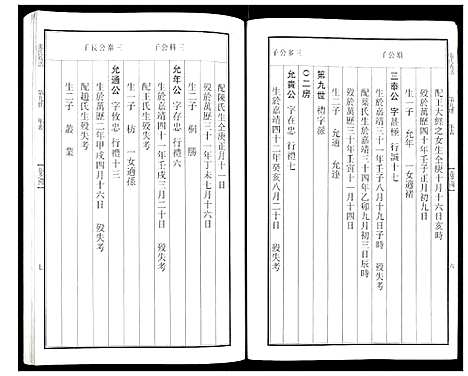 項公子
三奉公子
配王大經之女生仝庚十月十六日亥時
歿於萬歷四十年壬子正月初九日
生一子 允年 一女適褚
三奉公 字甚極 行誠十七
生於嘉靖三十一年壬子八月十九日子時
配葉氏生於嘉靖三十四年乙卯九月初三日辰時
歿於萬歷三十年壬寅十一月十四日
生二子 允通 允達
第九世 禮字派
〇二房
允貴公 字在忠 行禮七
生於嘉靖四十二年癸亥八月二十日
六
三科公子
三奉公長子
配陳氏生仝庚正月十一日
歿於萬歷三十一年丁未七月十六日
生二子 桐 勝
允年公 字存忠 行禮六
生於嘉靖四十一年壬戌三月二十日 歿失考
配王氏生歿失考
生一子 枋 一女適孫
允通公 字攸忠 行禮十三
生於萬歷二年甲戌四月十六日 歿失考
配趙氏生歿失考
生二子 叢 業
七